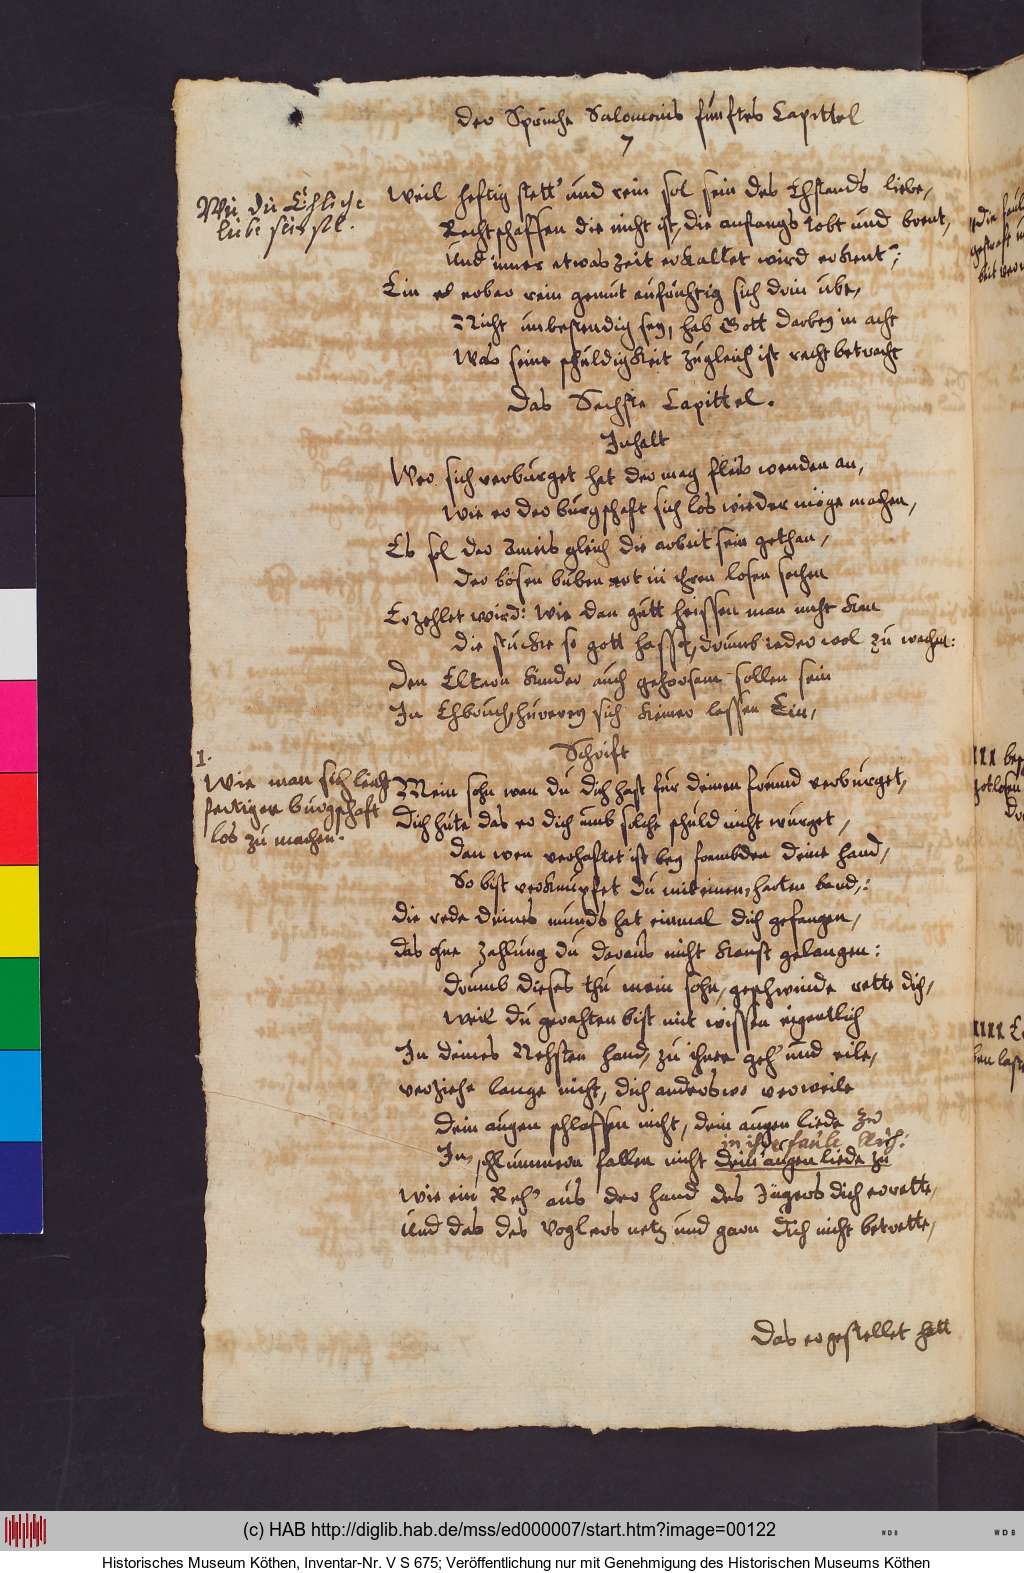 Der Sprüche Salomonis fünftes Capittel
7
Wie die Ehliche
liebe sein sol.
Weil heftig stett' und rein sol sein des Ehstands liebe,
Rechtschaffen die nicht ist, die anfangs tobt und brent,
Und immer etwas Zeit erkaltet wird erkent;
Ein erbar rein gemüt aufrichtig sich drin übe,
Nicht unbestendig sey, hab Gott darbey in acht
Was seine schuldigkeit zugleich ist recht betracht
Das Sechste Capittel.
Inhalt
Wer sich verbürget hat der mag fleis wenden an,
Wie er der bürgschaft sich los wieder möge machen,
Es sol der Emeis gleich die arbeit sein gethan,
Der bösen buben art in ihren losen sachen
Erzehlet wird: Wie dan gutt heissen man nicht kan
Die stucke so gott hasst, drumb ieder wol zu wachen:
Den Eltern kinder auch gehorsam sollen sein
In Ehbruch, hurerey sich keiner lassen Ein,
Schrift
1.
Wie man sich leicht
fertiger bürgschaft
los zu machen.
Mein sohn wen du dich hast für deinen freund verbürget,
Dich hüte das er dich umb solche schuld nicht würget,
Dan wen verhaftet ist bey frembden deine hand,
So bist verknüpfet du mit einem harten band,:
Die rede deines munds hat einmal dich gefangen,
das ohne Zahlung du daraus nicht kanst gelangen:
Drumb dieses thu mein sohn, geschwinde rette dich,
Weil du gerahten bist mit wissen eigentlich
In deines Nehsten hand, zu ihme geh' und eile,
verziehe lange nicht, dich anderswo verweile
dein augen schlaffen nicht, dein augenliede zu
in ihrer faule Ruh:
In schlummern fallen nicht dein' augenliede zu
Wie ein Reh' aus der hand des Jägers dich errette,
Und das des Voglers netz und garn dich nicht betrette,
Das er gestellet hatt
(c) HAB http://diglib.hab.de/mss/ed000007/start.htm?image=00122
WDB
WDB
Historisches Museum Köthen, Inventar-Nr. V S 675; Veröffentlichung nur mit Genehmigung des Historischen Museums Köthen